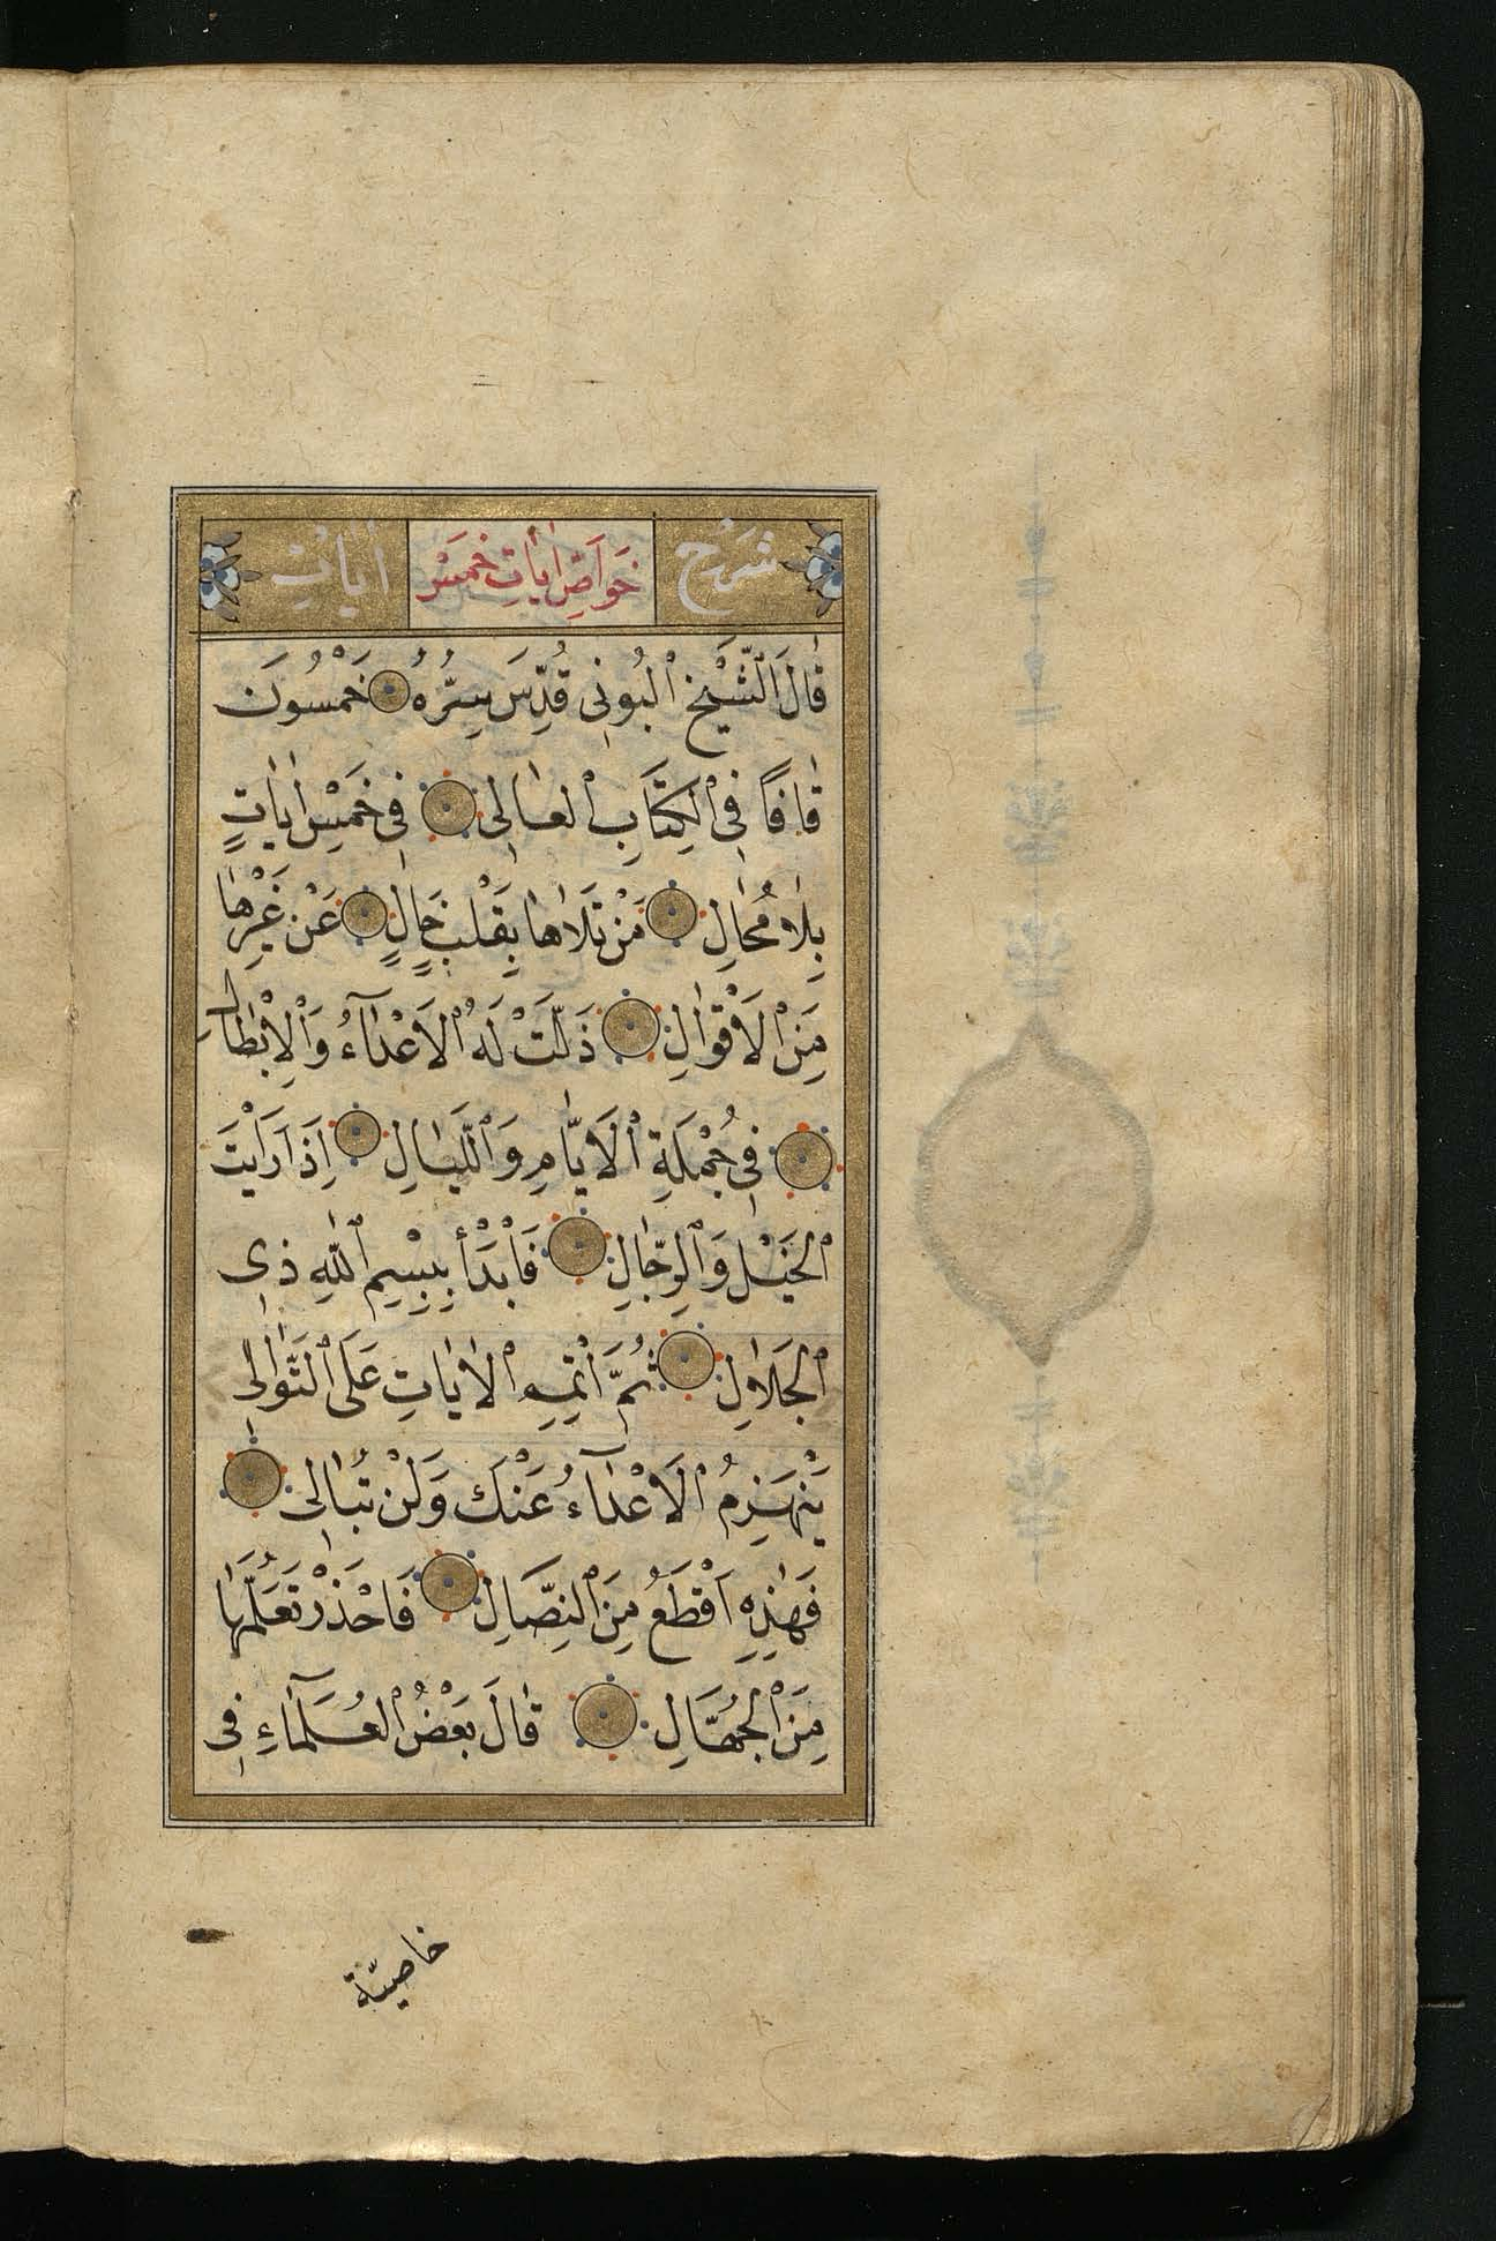 شَرْح خَوَاصِّ اٰيَاتِ خَمْسِ اٰيَاتٍ
قَالَ الشَّيْخُ ٱلْبُونِى قُدِّسَ سِرُّهُ خَمْسُونَ
قَافًا فِى ٱلْكِتَابِ ٱلْعَالِى فِى خَمْسِ اٰيَاتٍ
بِلَا مُحَالِ مَنْ تَلَاهَا بِقَلْبٍ خَالٍ عَنْ غَيْرِهَا
مِنَ ٱلْاَقْوَالِ ذَلَّتْ لَهُ ٱلْاَعْدَآءُ وَٱلْاَبْطَالُ
فِى جُمْلَةِ ٱلْاَيَّامِ وَٱللَّيَالِ اِذَا رَاَيْتَ
ٱلْخَيْلَ وَٱلرِّجَالِ فَابْدَأْ بِبِسْمِ ٱللّٰهِ ذِى
ٱلْجَلَالِ ثُمَّ اَتْمِهِ ٱلْاٰيَاتِ عَلَى ٱلتَّوَالِى
يَنْهَزِمُ ٱلْاَعْدَآءُ عَنْكَ وَلَنْ تُبَالِى
فَهٰذِهِ اَقْطَعُ مِنَ ٱلنِّصَالِ فَاحْذَرْ تَعَلُّمَهَا
مِنَ ٱلْجُهَّالِ قَالَ بَعْضُ ٱلْعُلَمَآءِ فِى
خاصيّة